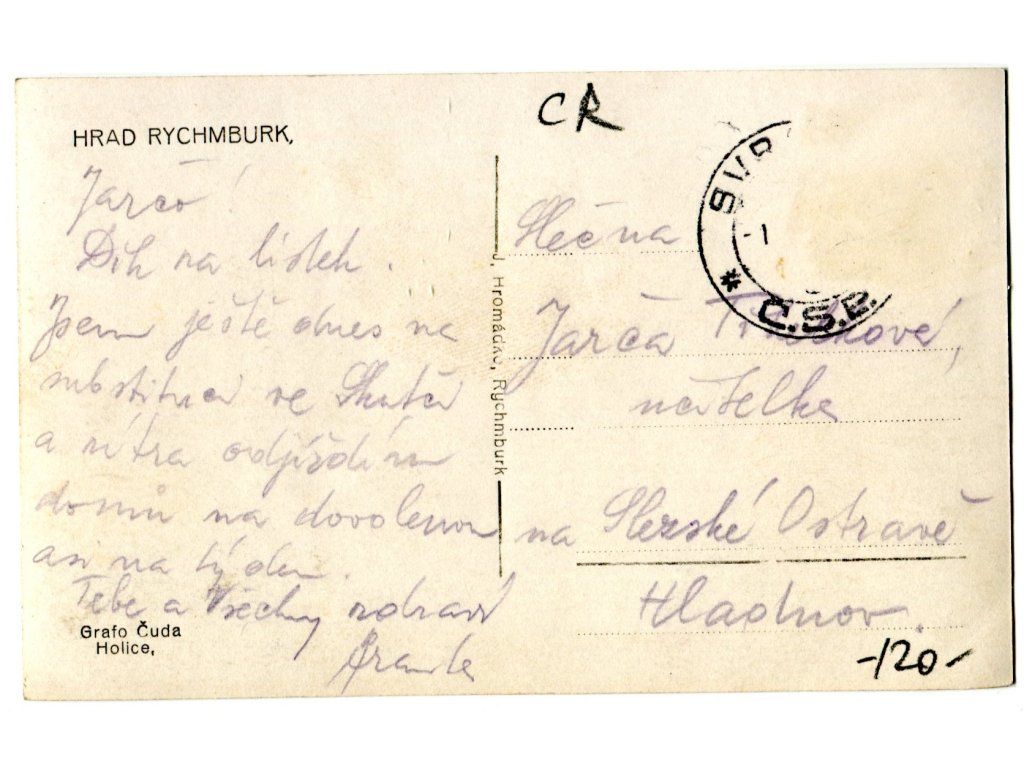 HRAD RYCHMBURK,
CR
Jarčo!
Dík na lístek.
Jsem ještě dnes na
substituci ve Skutči
a zítra odjíždím
domů na dovolenou
asi na týden.
Tebe a všechny zdraví
Grafo Čuda
Holice,
J. Hromádko, Rychmburk
SVR
* Č.S.R.
-1
Slečna
Jarča
učitelka
na Slezské Ostravě
Hladnov.
-120-